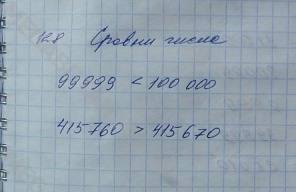 128 Сравни числа
99999 < 100 000
415760 > 415670